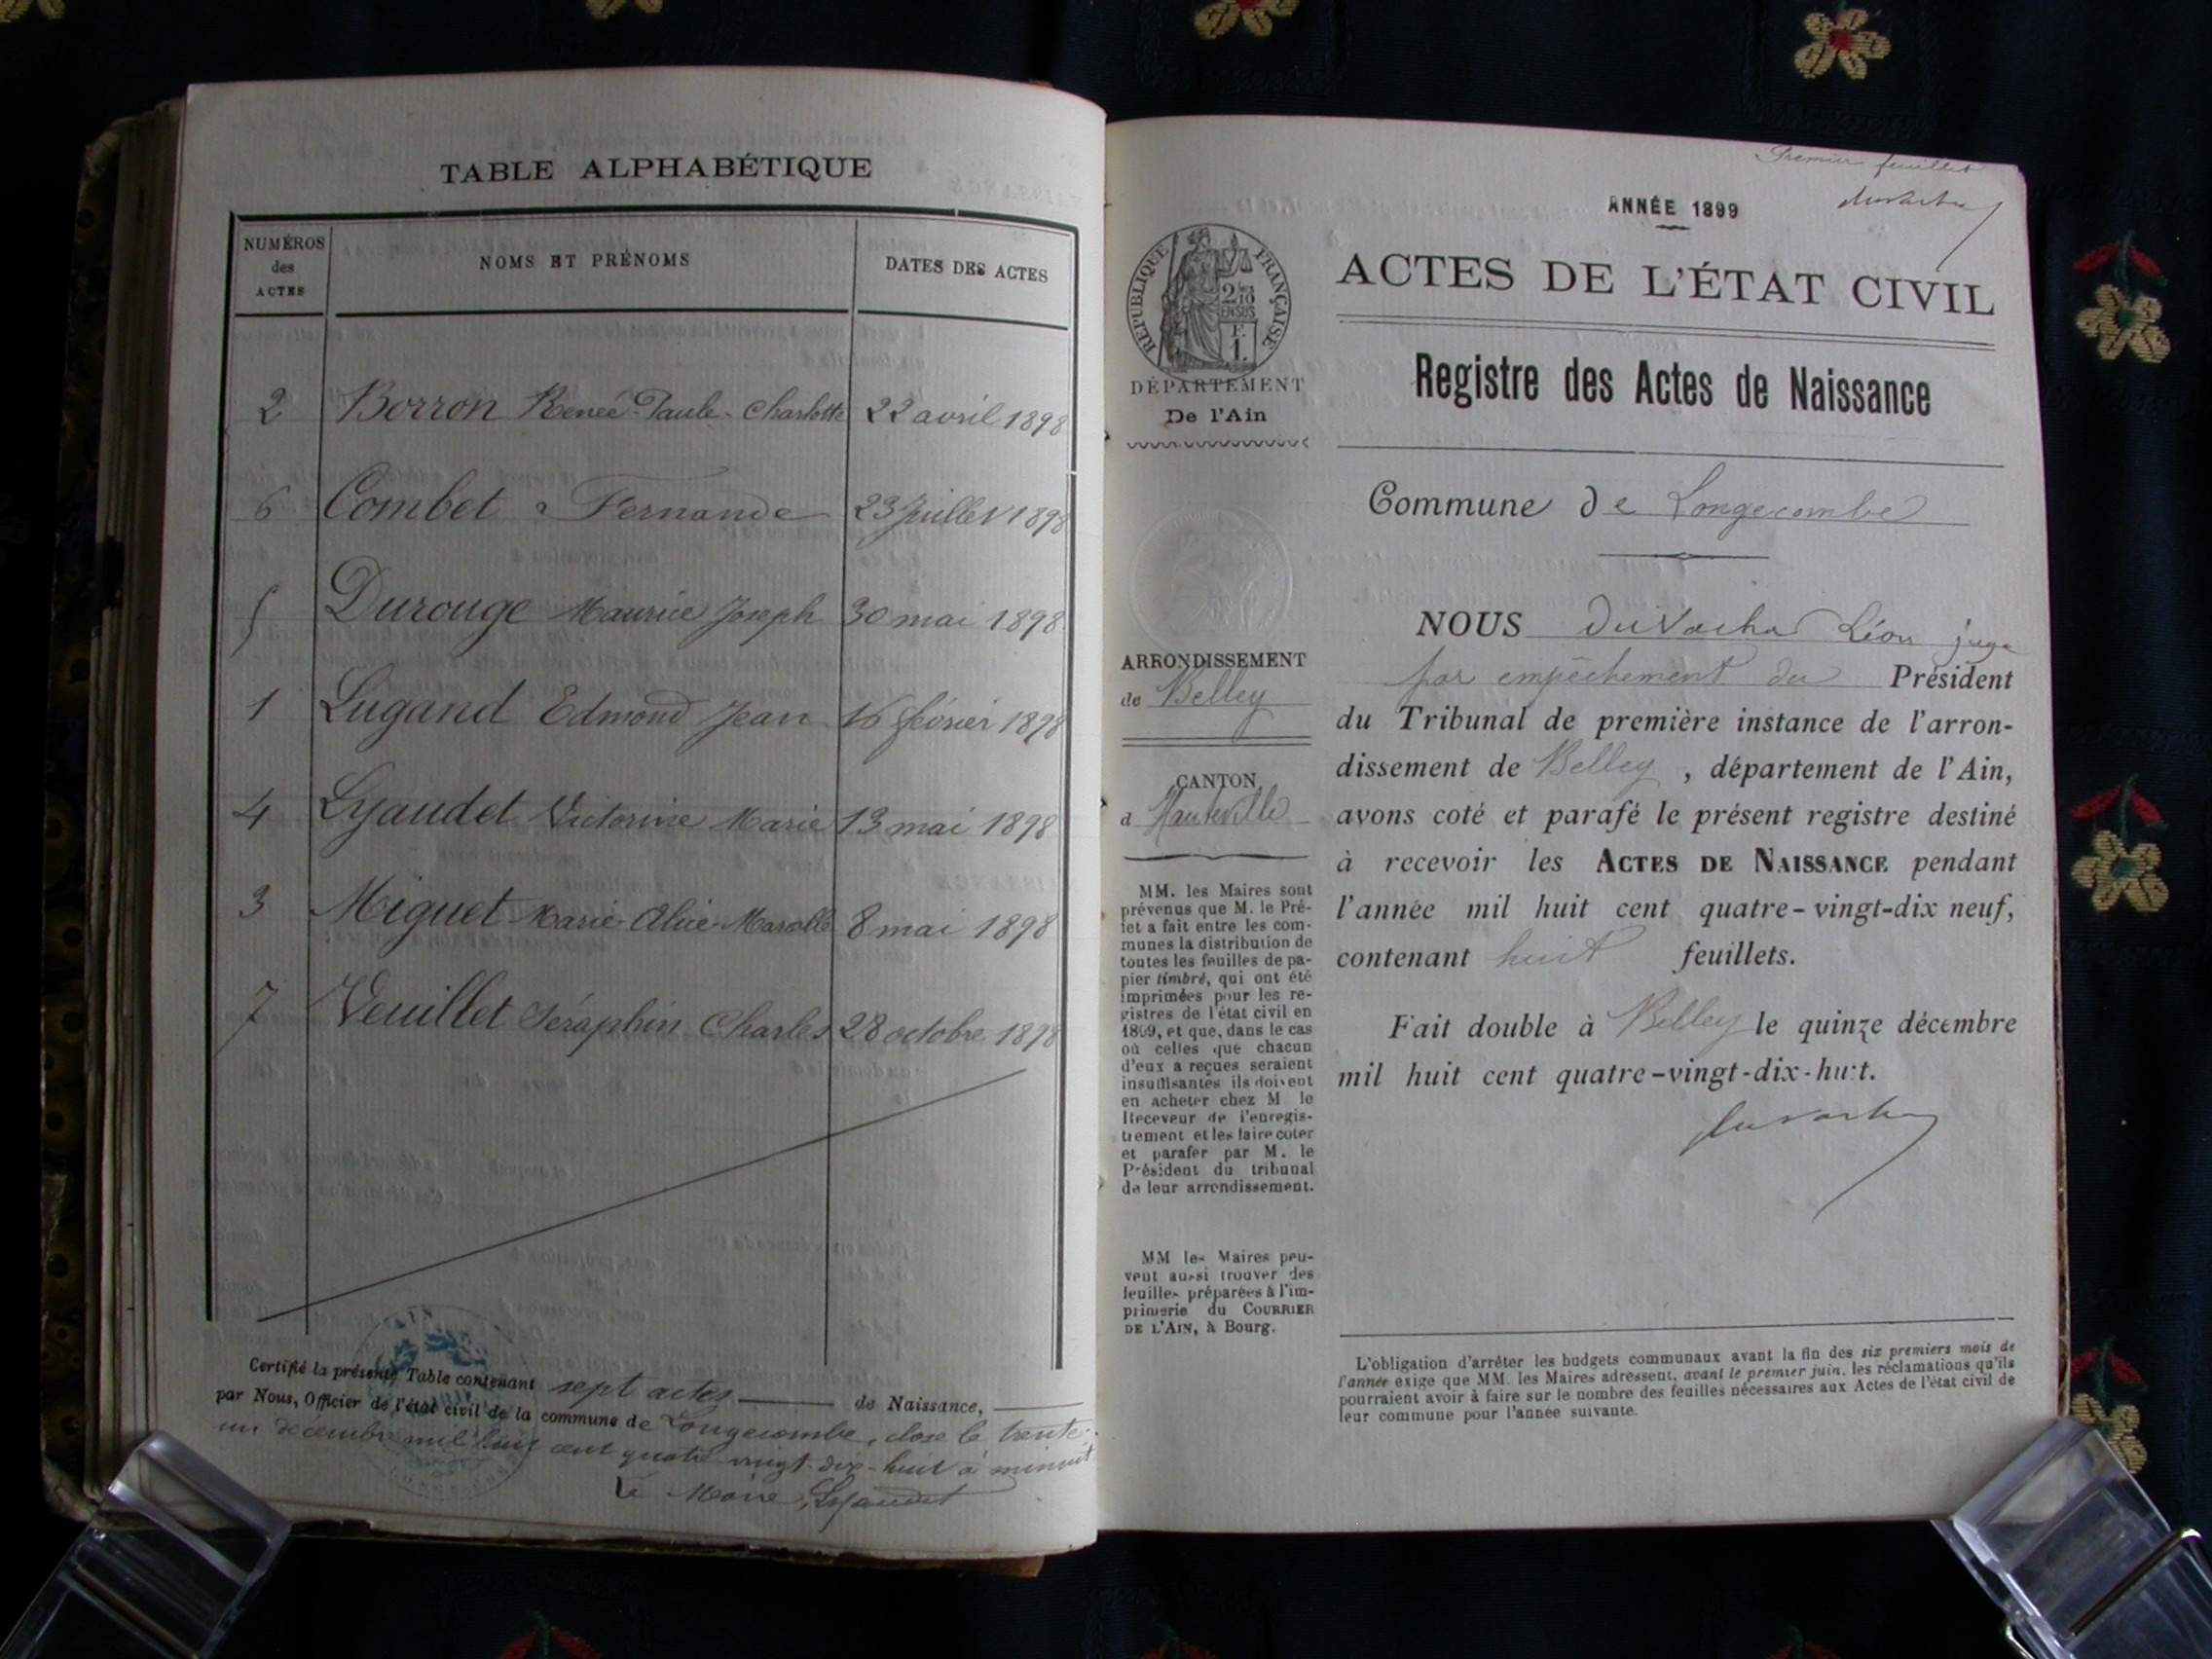 TABLE ALPHABÉTIQUE
NUMÉROS
des
ACTES
NOMS ET PRÉNOMS
DATES DES ACTES
2 Borron Renée-Paule-Charlotte 22 avril 1898
6 Combet Fernande 23 Juillet 1898
5 Durouge Maurice Joseph 30 mai 1898
1 Lugand Edmond Jean 16 février 1898
4 Lyaudet Victorine Marie 13 mai 1898
3 Miguet Marie 8 mai 1898
7 Veuillet Séraphin Charles 28 octobre 1898
Certifié la présente Table contenant sept actes de Naissance,
par Nous, Officier de l'état civil de la commune de Longecombe, close le trente-
un décembre mil huit cent quatre-vingt-dix-huit à minuit
Le Maire, Lyaudet
Premier feuillet
ANNÉE 1899
RÉPUBLIQUE FRANÇAISE
ACTES DE L'ÉTAT CIVIL
DÉPARTEMENT
De l'Ain
Registre des Actes de Naissance
Commune de Longecombe
ARRONDISSEMENT
de Belley
CANTON
d Hauteville
MM. les Maires sont
prévenus que M. le Pré-
fet a fait entre les com-
munes la distribution de
toutes les feuilles de pa-
pier timbré, qui ont été
imprimées pour les re-
gistres de l'état civil en
1899, et que, dans le cas
où celles que chacun
d'eux a reçues seraient
insuffisantes ils doivent
en acheter chez M le
Receveur de l'enregis-
trement et les faire coter
et parafer par M. le
Président du tribunal
de leur arrondissement.
MM les Maires peu-
vent aussi trouver des
feuilles préparées à l'im-
primerie du COURRIER
DE L'AIN, à Bourg.
NOUS Léon juge
par empêchement du Président
du Tribunal de première instance de l'arron-
dissement de Belley, département de l'Ain,
avons coté et parafé le présent registre destiné
à recevoir les ACTES DE NAISSANCE pendant
l'année mil huit cent quatre-vingt-dix neuf,
contenant huit feuillets.
Fait double à Belley le quinze décembre
mil huit cent quatre-vingt-dix-huit.
L'obligation d'arrêter les budgets communaux avant la fin des six premiers mois de
l'année exige que MM. les Maires adressent, avant le premier juin, les réclamations qu'ils
pourraient avoir à faire sur le nombre des feuilles nécessaires aux Actes de l'état civil de
leur commune pour l'année suivante.